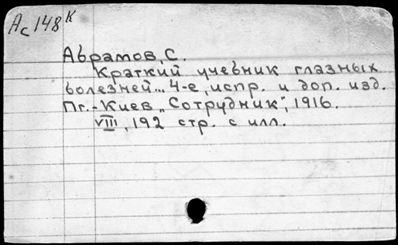 Ас 148к
Абрамов, С.
Краткий учебник глазных
болезней... 4-е, испр. и доп. изд.
Пг.-Киев „Сотрудник", 1916.
VIII, 192 стр. с илл.